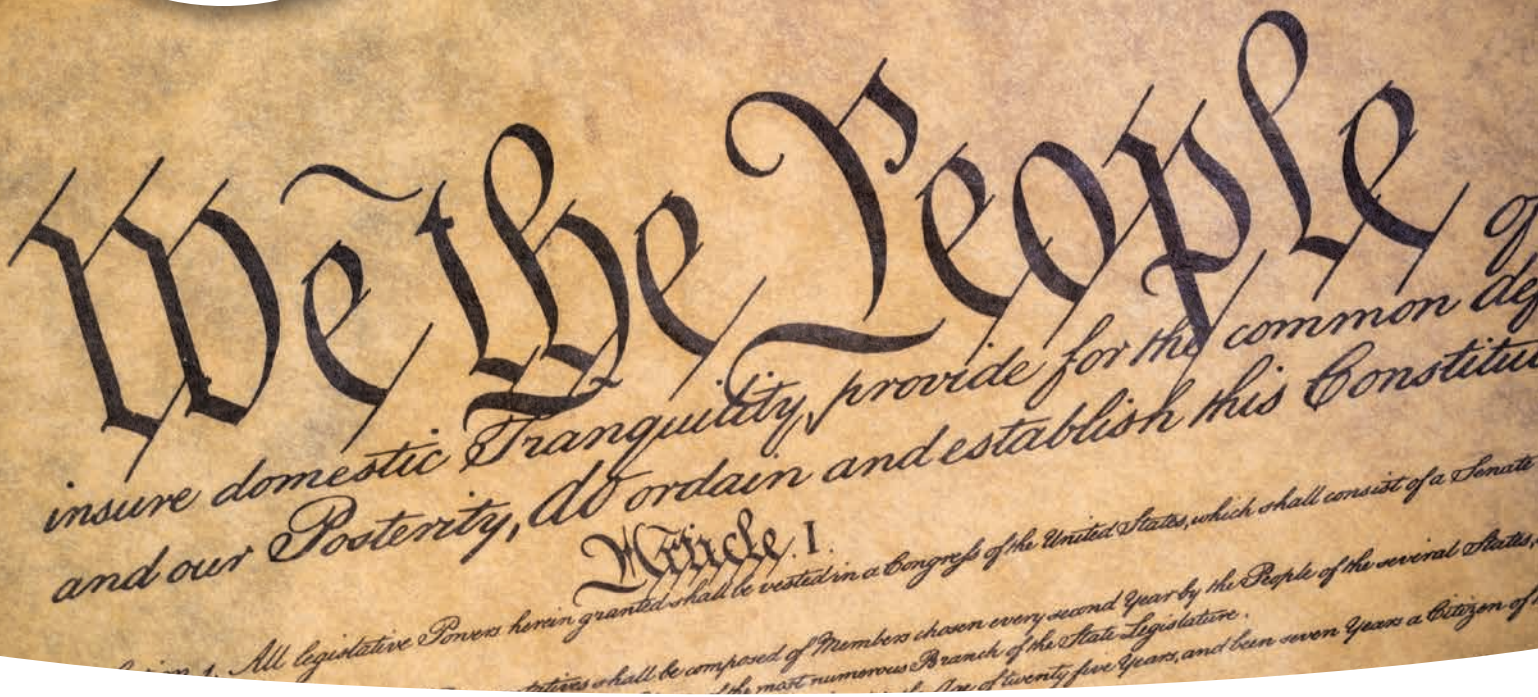 We the People of
insure domestic Tranquility, provide for the common def
and our Posterity, do ordain and establish this Constitu
Article. I.
1. All legislative Powers herein granted shall be vested in a Congress of the United States, which shall consist of a Senate
shall be composed of Members chosen every second Year by the People of the several States,
the most numerous Branch of the State Legislature.
Age of twenty five Years, and been seven Years a Citizen of